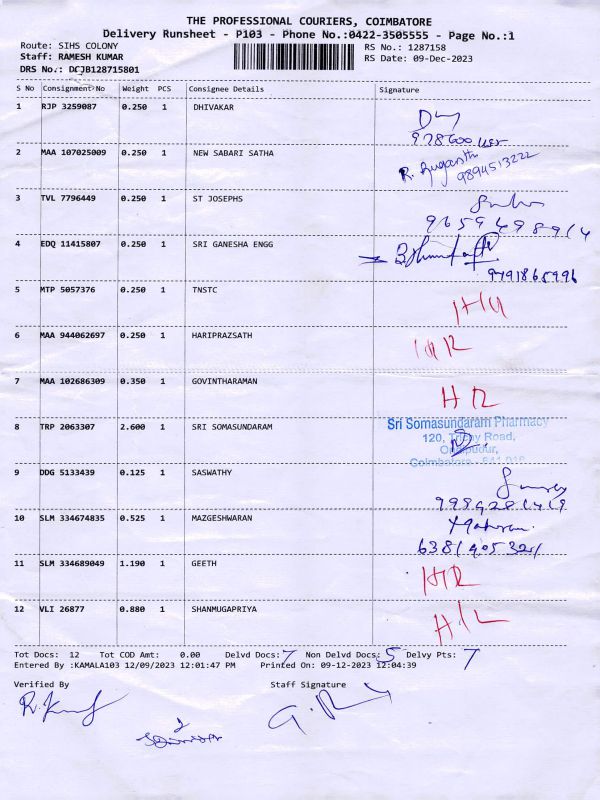 THE PROFESSIONAL COURIERS, COIMBATORE
Delivery Runsheet - P103 - Phone No.:0422-3505555 - Page No.:1
Route: SIHS COLONY
RS No.: 1287158
Staff: RAMESH KUMAR
RS Date: 09-Dec-2023
DRS No.: DCJB128715801
S No Consignment No Weight PCS Consignee Details Signature
1 RJP 3259087 0.250 1 DHIVAKAR
2 MAA 107025009 0.250 1 NEW SABARI SATHA
9894513222
3 TVL 7796449 0.250 1 ST JOSEPHS
9659498914
4 EDQ 11415807 0.250 1 SRI GANESHA ENGG
9791865996
5 MTP 5057376 0.250 1 TNSTC
6 MAA 944062697 0.250 1 HARIPRAZSATH
7 MAA 102686309 0.350 1 GOVINTHARAMAN
HR
8 TRP 2063307 2.600 1 SRI SOMASUNDARAM
Sri Somasundaram Pharmacy
120, Trichy Road,
Coimbatore
9 DDG 5133439 0.125 1 SASWATHY
10 SLM 334674835 0.525 1 MAZGESHWARAN
6381905321
11 SLM 334689049 1.190 1 GEETH
HR
12 VLI 26877 0.880 1 SHANMUGAPRIYA
Tot Docs: 12 Tot COD Amt: 0.00 Delvd Docs: 7 Non Delvd Docs: 5 Delvy Pts: 7
Entered By :KAMALA103 12/09/2023 12:01:47 PM Printed On: 09-12-2023 12:04:39
Verified By Staff Signature